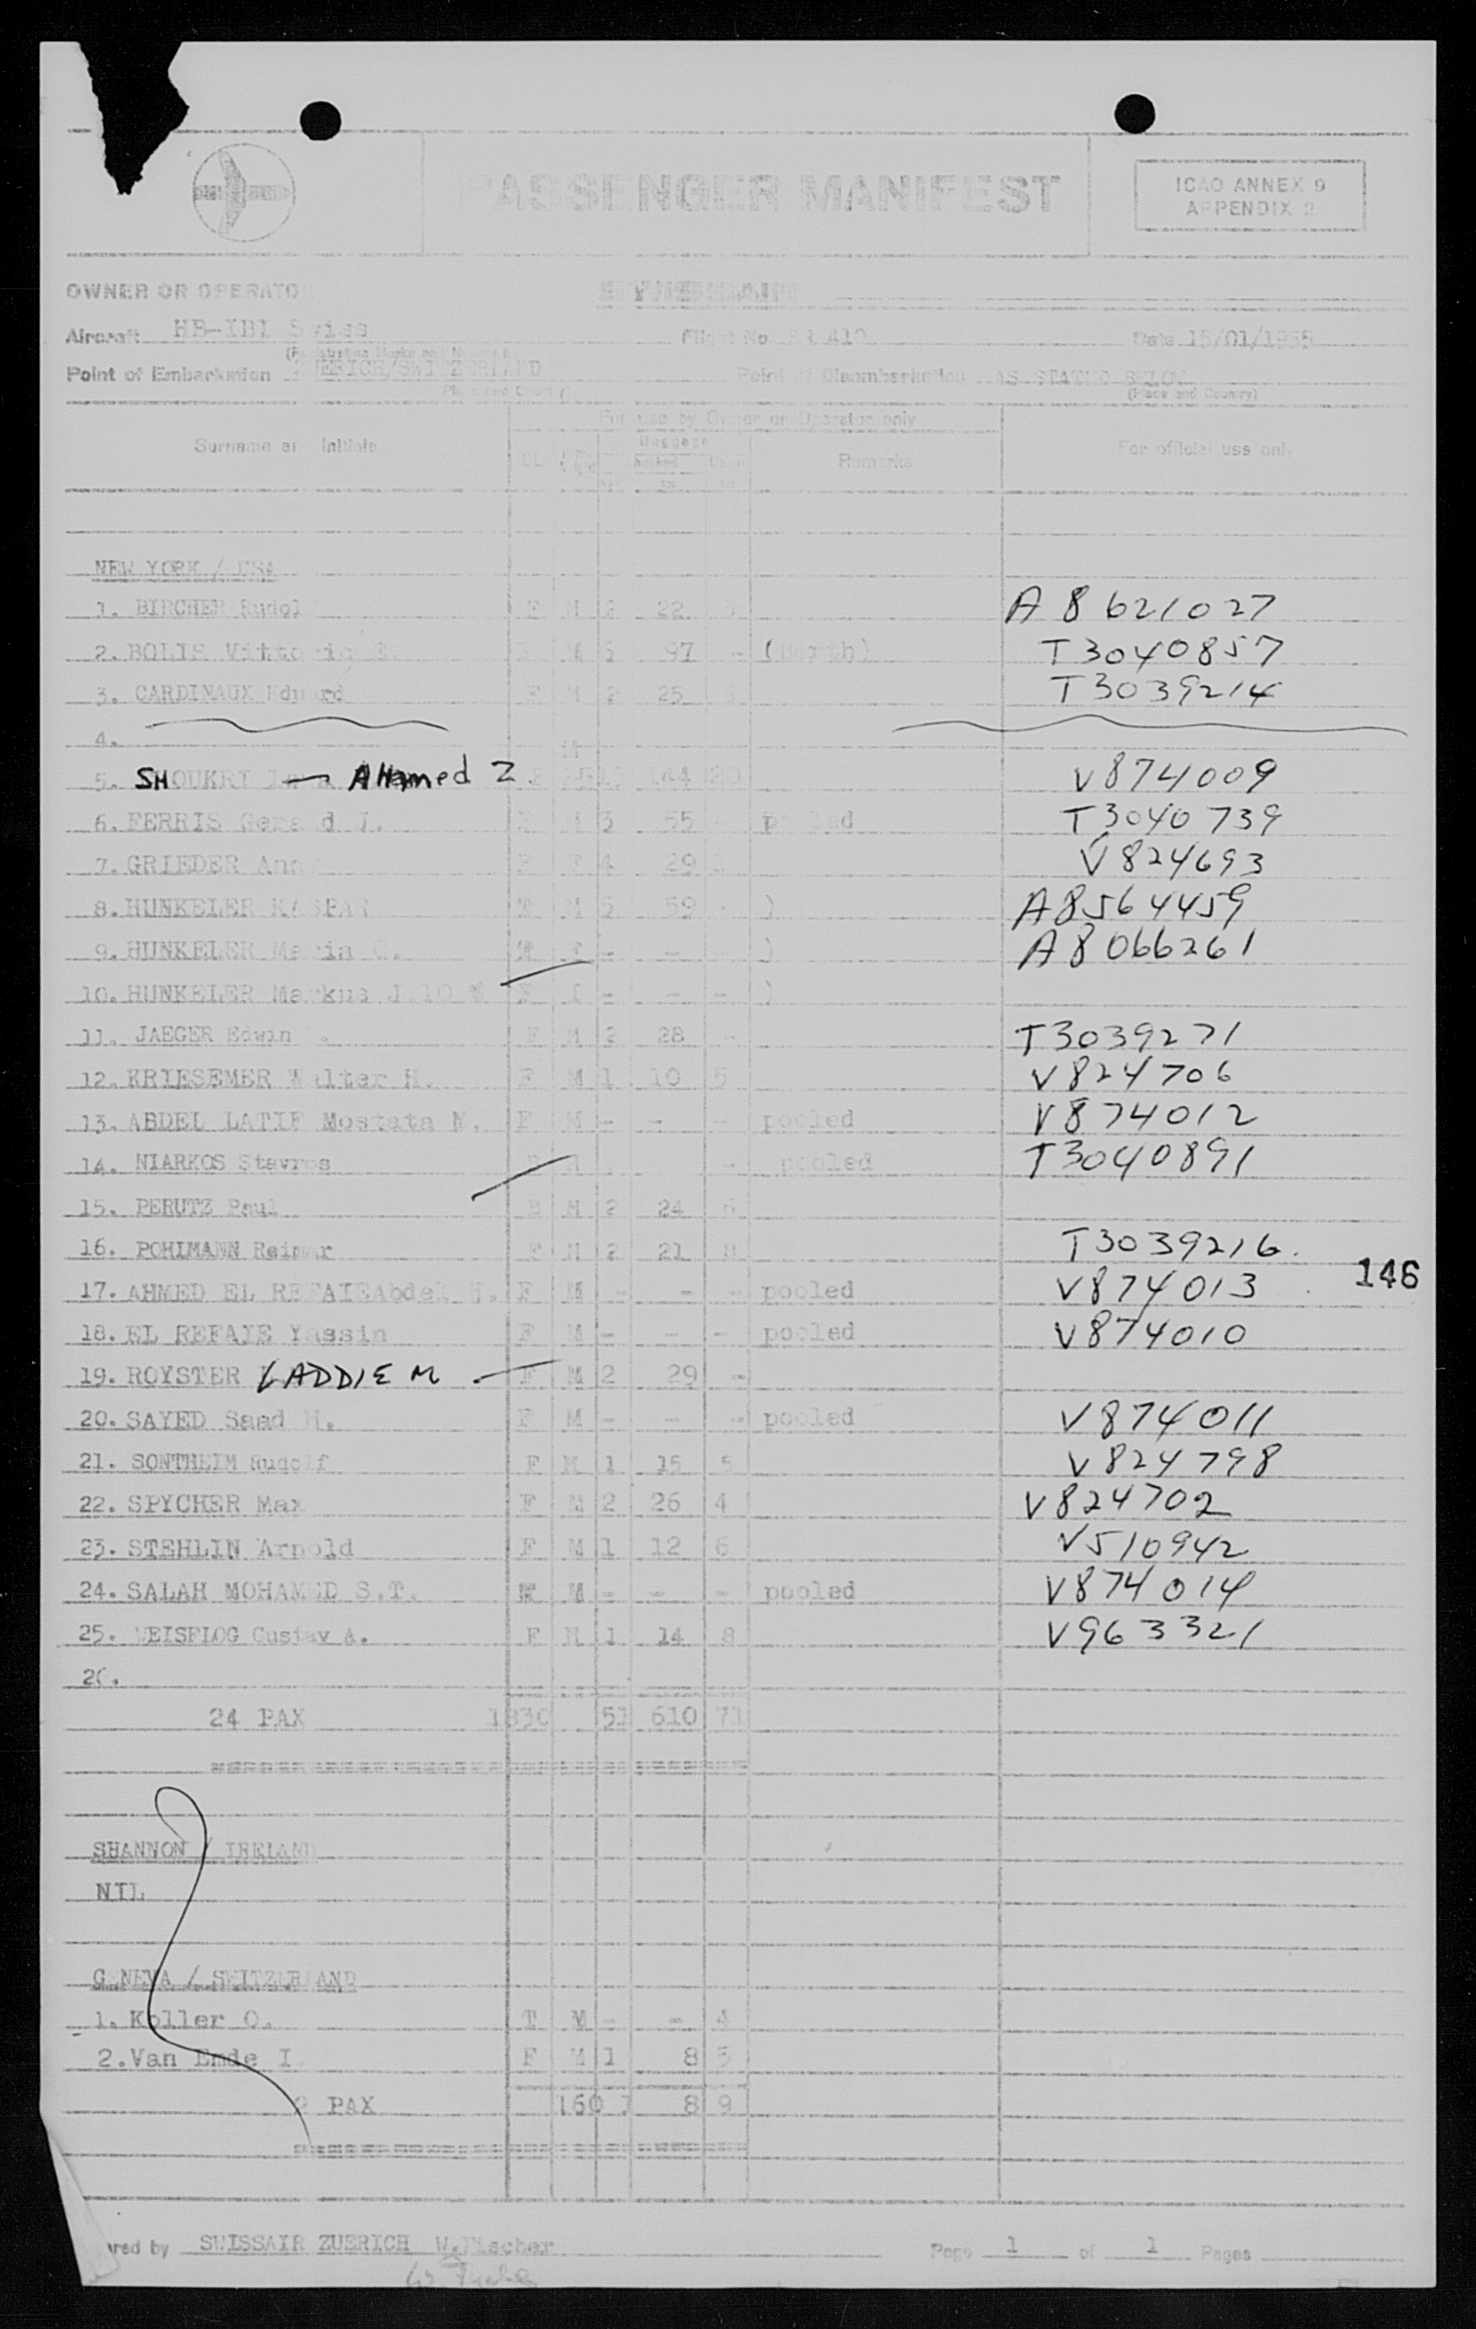 PASSENGER MANIFEST
ICAO ANNEX 9
APPENDIX 2
OWNER OR OPERATOR
Aircraft HB-IBI Swiss Flight No. SR 410 Date 15/01/1958
Point of Embarkation ZUERICH/SWITZERLAND Point of Disembarkation AS STATED BELOW
(Place and Country) (Place and Country)
For use by Owner or Operator only
Surname and Initials Remarks For official use only
NEW YORK / USA
1. BIRCHER Rudolf F M 2 22 A8621027
2. BOLIS Vittorio M 5 97 - (Berth) T3040857
3. CARDINAUX Eduard F M 2 25 T3039214
4. M
5. SHOUKRI AHAmed Z 144 V874009
6. FERRIS Gerald J. 3 55 pooled T3040739
7. GRIEDER Anna F F 4 29 V824693
8. HUNKELER KASPAR M 5 59 - ) A8564459
9. HUNKELER Maria C. F - - ) A8066261
10. HUNKELER Markus J. - - - )
11. JAEGER Edwin F M 2 28 - T3039271
12. KRIESEMER Walter H. F M 1 10 5 V824706
13. ABDEL LATIF Mostafa M. F M - - - pooled V874012
14. NIARKOS Stavros M - pooled T3040891
15. PERUTZ Paul M 2 24 6
16. POHLMANN Reimar F M 2 21 8 T3039216
146
17. AHMED EL REFAIE Abdel H. F M - - - pooled V874013
18. EL REFAIE Yassin F M - - - pooled V874010
19. ROYSTER LADDIE M F M 2 29 -
20. SAYED Saad H. F M - - - pooled V874011
21. SONTHEIM Rudolf F M 1 15 5 V824798
22. SPYCHER Max F M 2 26 4 V824702
23. STEHLIN Arnold F M 1 12 6 V510942
24. SALAH MOHAMED S.T. M - - - pooled V874014
25. WEISFLOG Gustav A. F M 1 14 8 V963321
26.
24 PAX 1830 51 610 71
SHANNON / IRELAND
NIL
GENEVA / SWITZERLAND
1. Koller O. T M - - 4
2. Van Ende I F M 1 8 5
2 PAX 160 1 8 9
ared by SWISSAIR ZUERICH W. Fischer Page 1 of 1 Pages